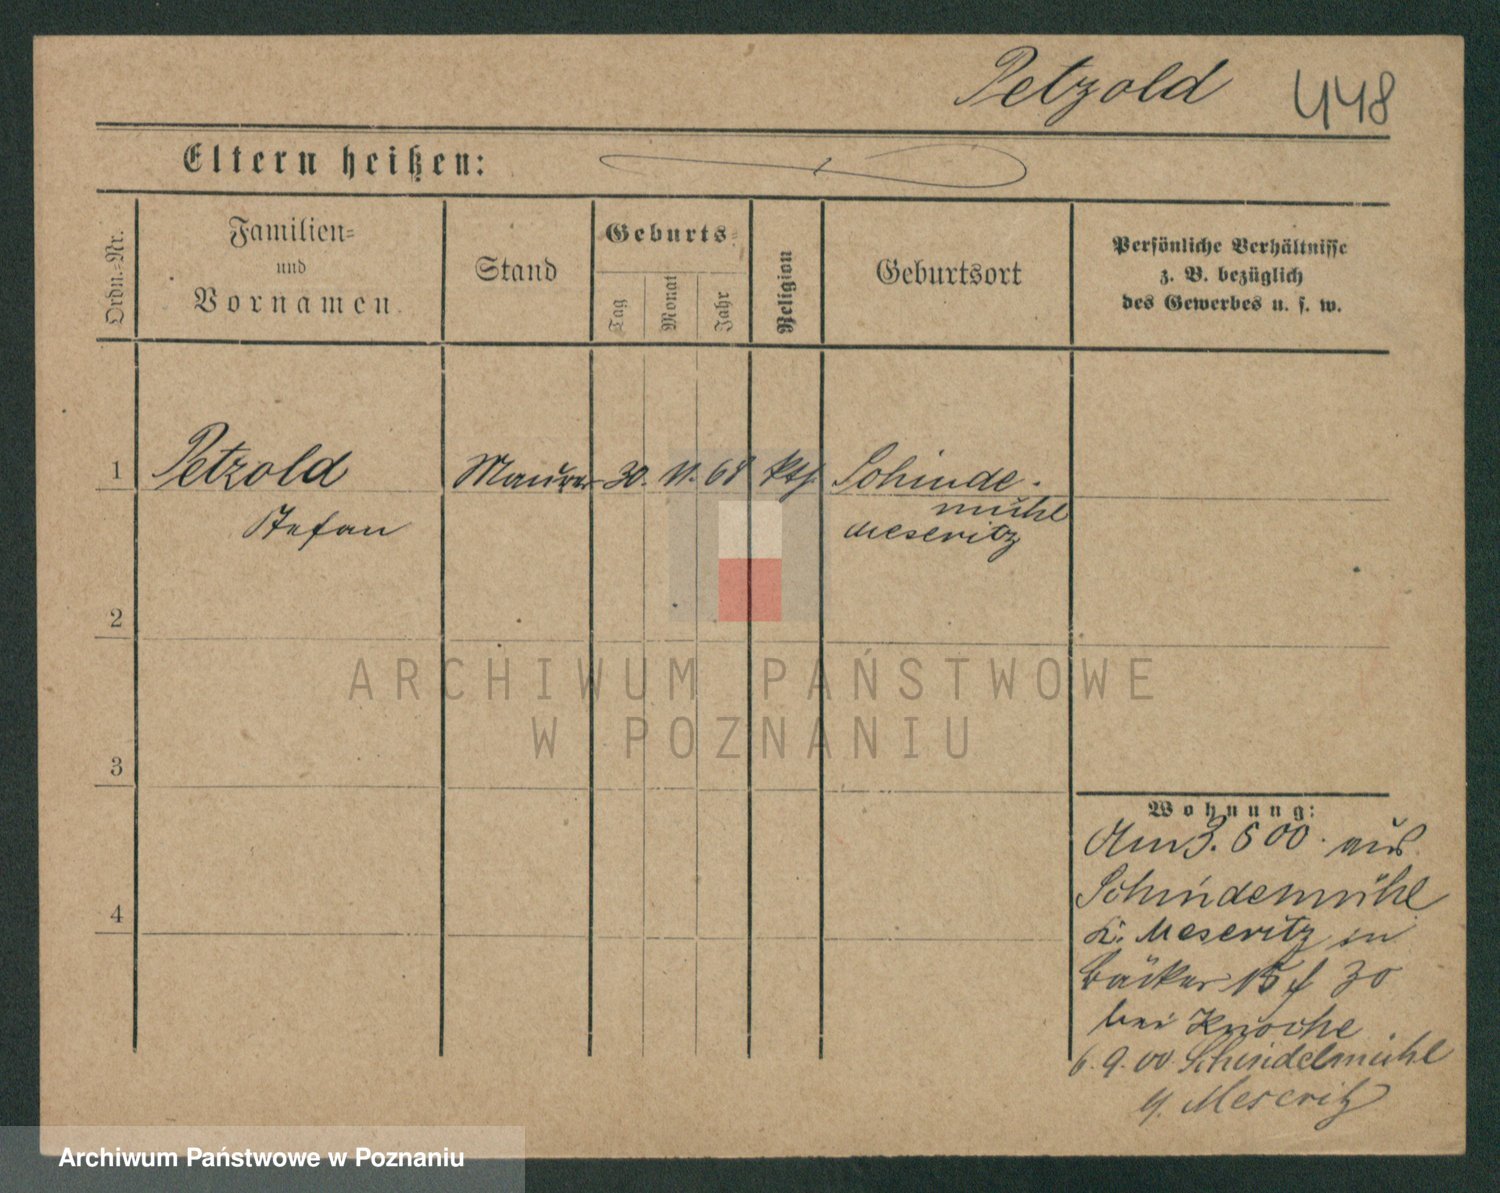 Petzold 448
Eltern heißen:
Ordn.-Nr.
Familien-
und
Vornamen.
Stand
Geburts-
Tag
Monat
Jahr
Religion
Geburtsort
Persönliche Verhältnisse
z. B. bezüglich
des Gewerbes u. s. w.
1 Petzold Maurer 30. 11. 68 kth. Schinde-
mühl
Stefan Meseritz
2
3
4
Wohnung:
Am 3. 5 00. aus
Schindemühl
K. Meseritz in
Bäcker 15 f 30
bei Knoche
6. 9. 00 Schindelmühl
Meseritz
ARCHIWUM PAŃSTWOWE
W POZNANIU
Archiwum Państwowe w Poznaniu